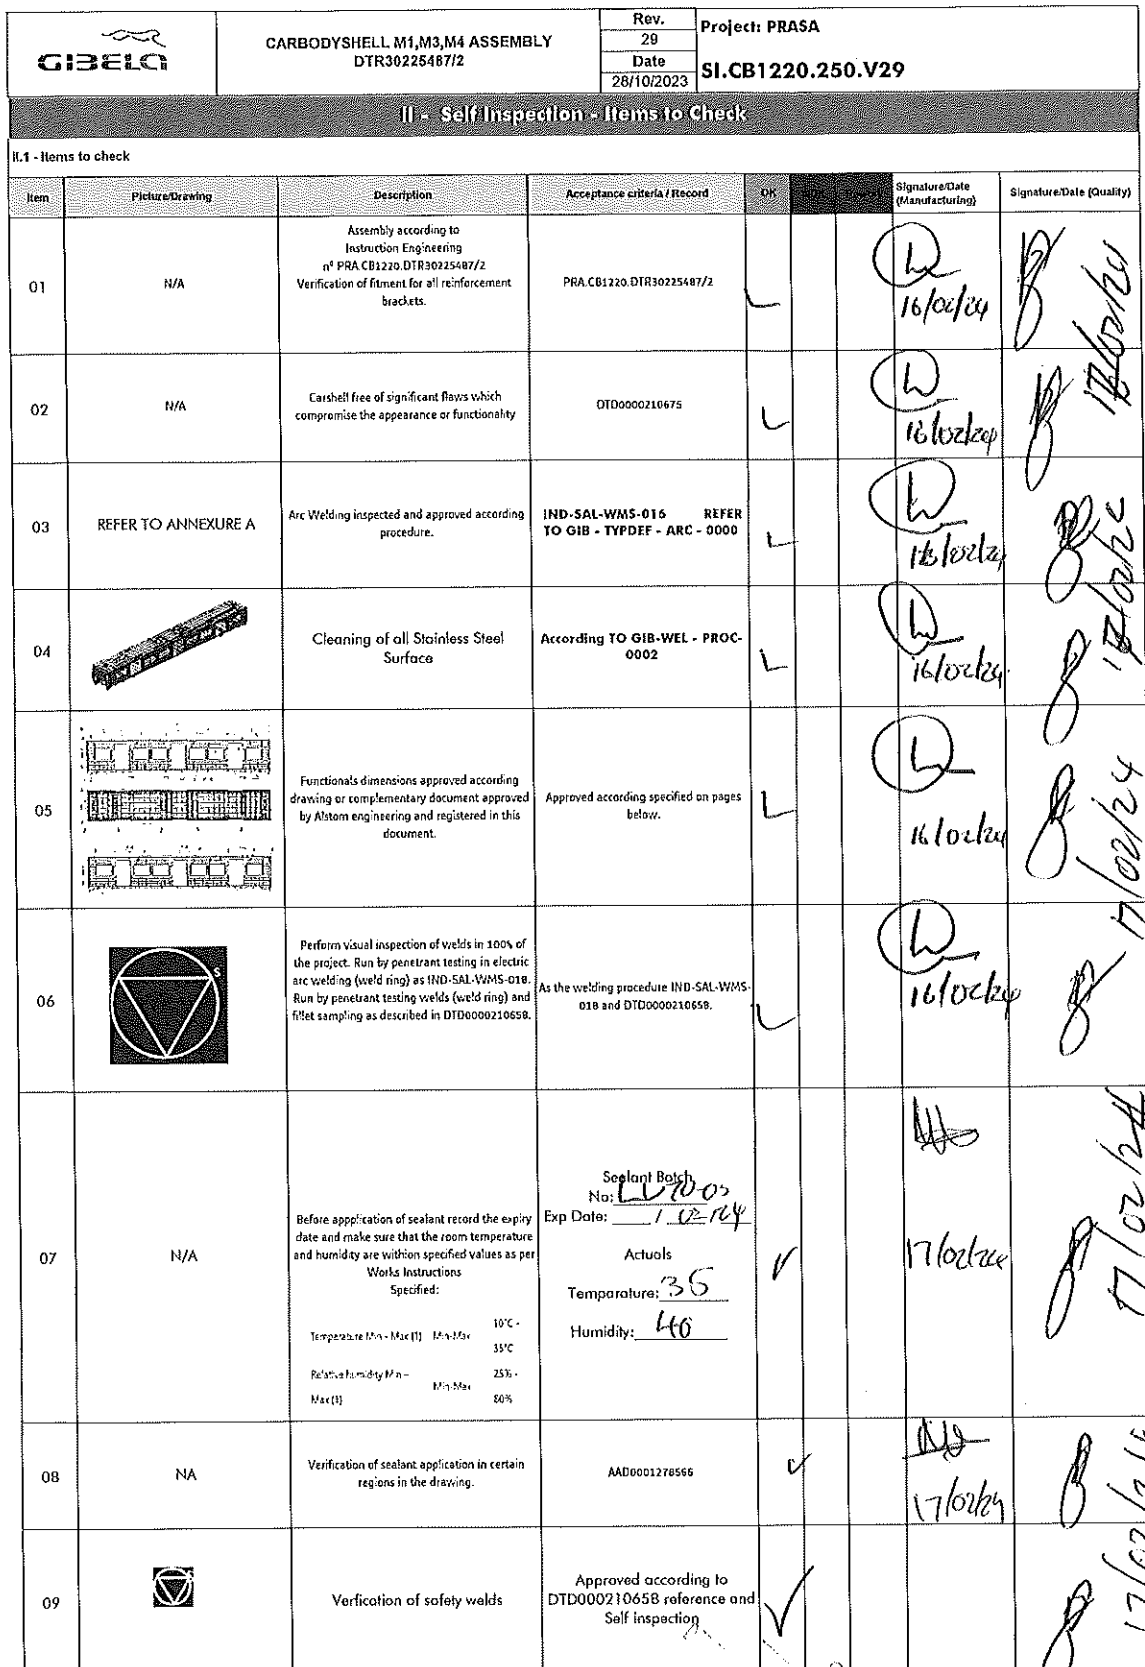 GIBELA
CARBODYSHELL M1,M3,M4 ASSEMBLY
DTR30225487/2
Rev.
29
Date
28/10/2023
Project: PRASA
SI.CB1220.250.V29
II - Self Inspection - Items to Check
II.1 - Items to check
Item
Picture/Drawing
Description
Acceptance criteria / Record
OK
Signature/Date
(Manufacturing)
Signature/Date (Quality)
01
N/A
Assembly according to
Instruction Engineering
nº PRA.CB1220.DTR30225487/2
Verification of fitment for all reinforcement
brackets.
PRA.CB1220.DTR30225487/2
16/02/24
02
N/A
Carshell free of significant flaws which
compromise the appearance or functionality
DTD0000210675
16/02/24
03
REFER TO ANNEXURE A
Arc Welding inspected and approved according
procedure.
IND-SAL-WMS-016 REFER
TO GIB - TYPDEF - ARC - 0000
16/02/24
04
Cleaning of all Stainless Steel
Surface
According TO GIB-WEL - PROC-
0002
16/02/24
05
Functionals dimensions approved according
drawing or complementary document approved
by Alstom engineering and registered in this
document.
Approved according specified on pages
below.
16/02/24
17/02/24
06
S
Perform visual inspection of welds in 100% of
the project. Run by penetrant testing in electric
arc welding (weld ring) as IND-SAL-WMS-018.
Run by penetrant testing welds (weld ring) and
fillet sampling as described in DTD0000210658.
As the welding procedure IND-SAL-WMS-
018 and DTD0000210658.
16/02/24
07
N/A
Before appplication of sealant record the expiry
date and make sure that the room temperature
and humidity are withion specified values as per
Works Instructions
Specified:
Temperature Min - Max (1) Min-Max 10°C -
35°C
Relative humidity Min –
Max (1) Min-Max 25% -
80%
Sealant Batch
No:
Exp Date: / 02/24
Actuals
Temporature: 35
Humidity: 40
17/02/24
17/02/24
08
NA
Verification of sealant application in certain
regions in the drawing.
AAD0001278566
17/02/24
09
Verfication of safety welds
Approved according to
DTD000210658 reference and
Self inspection
17/02/24